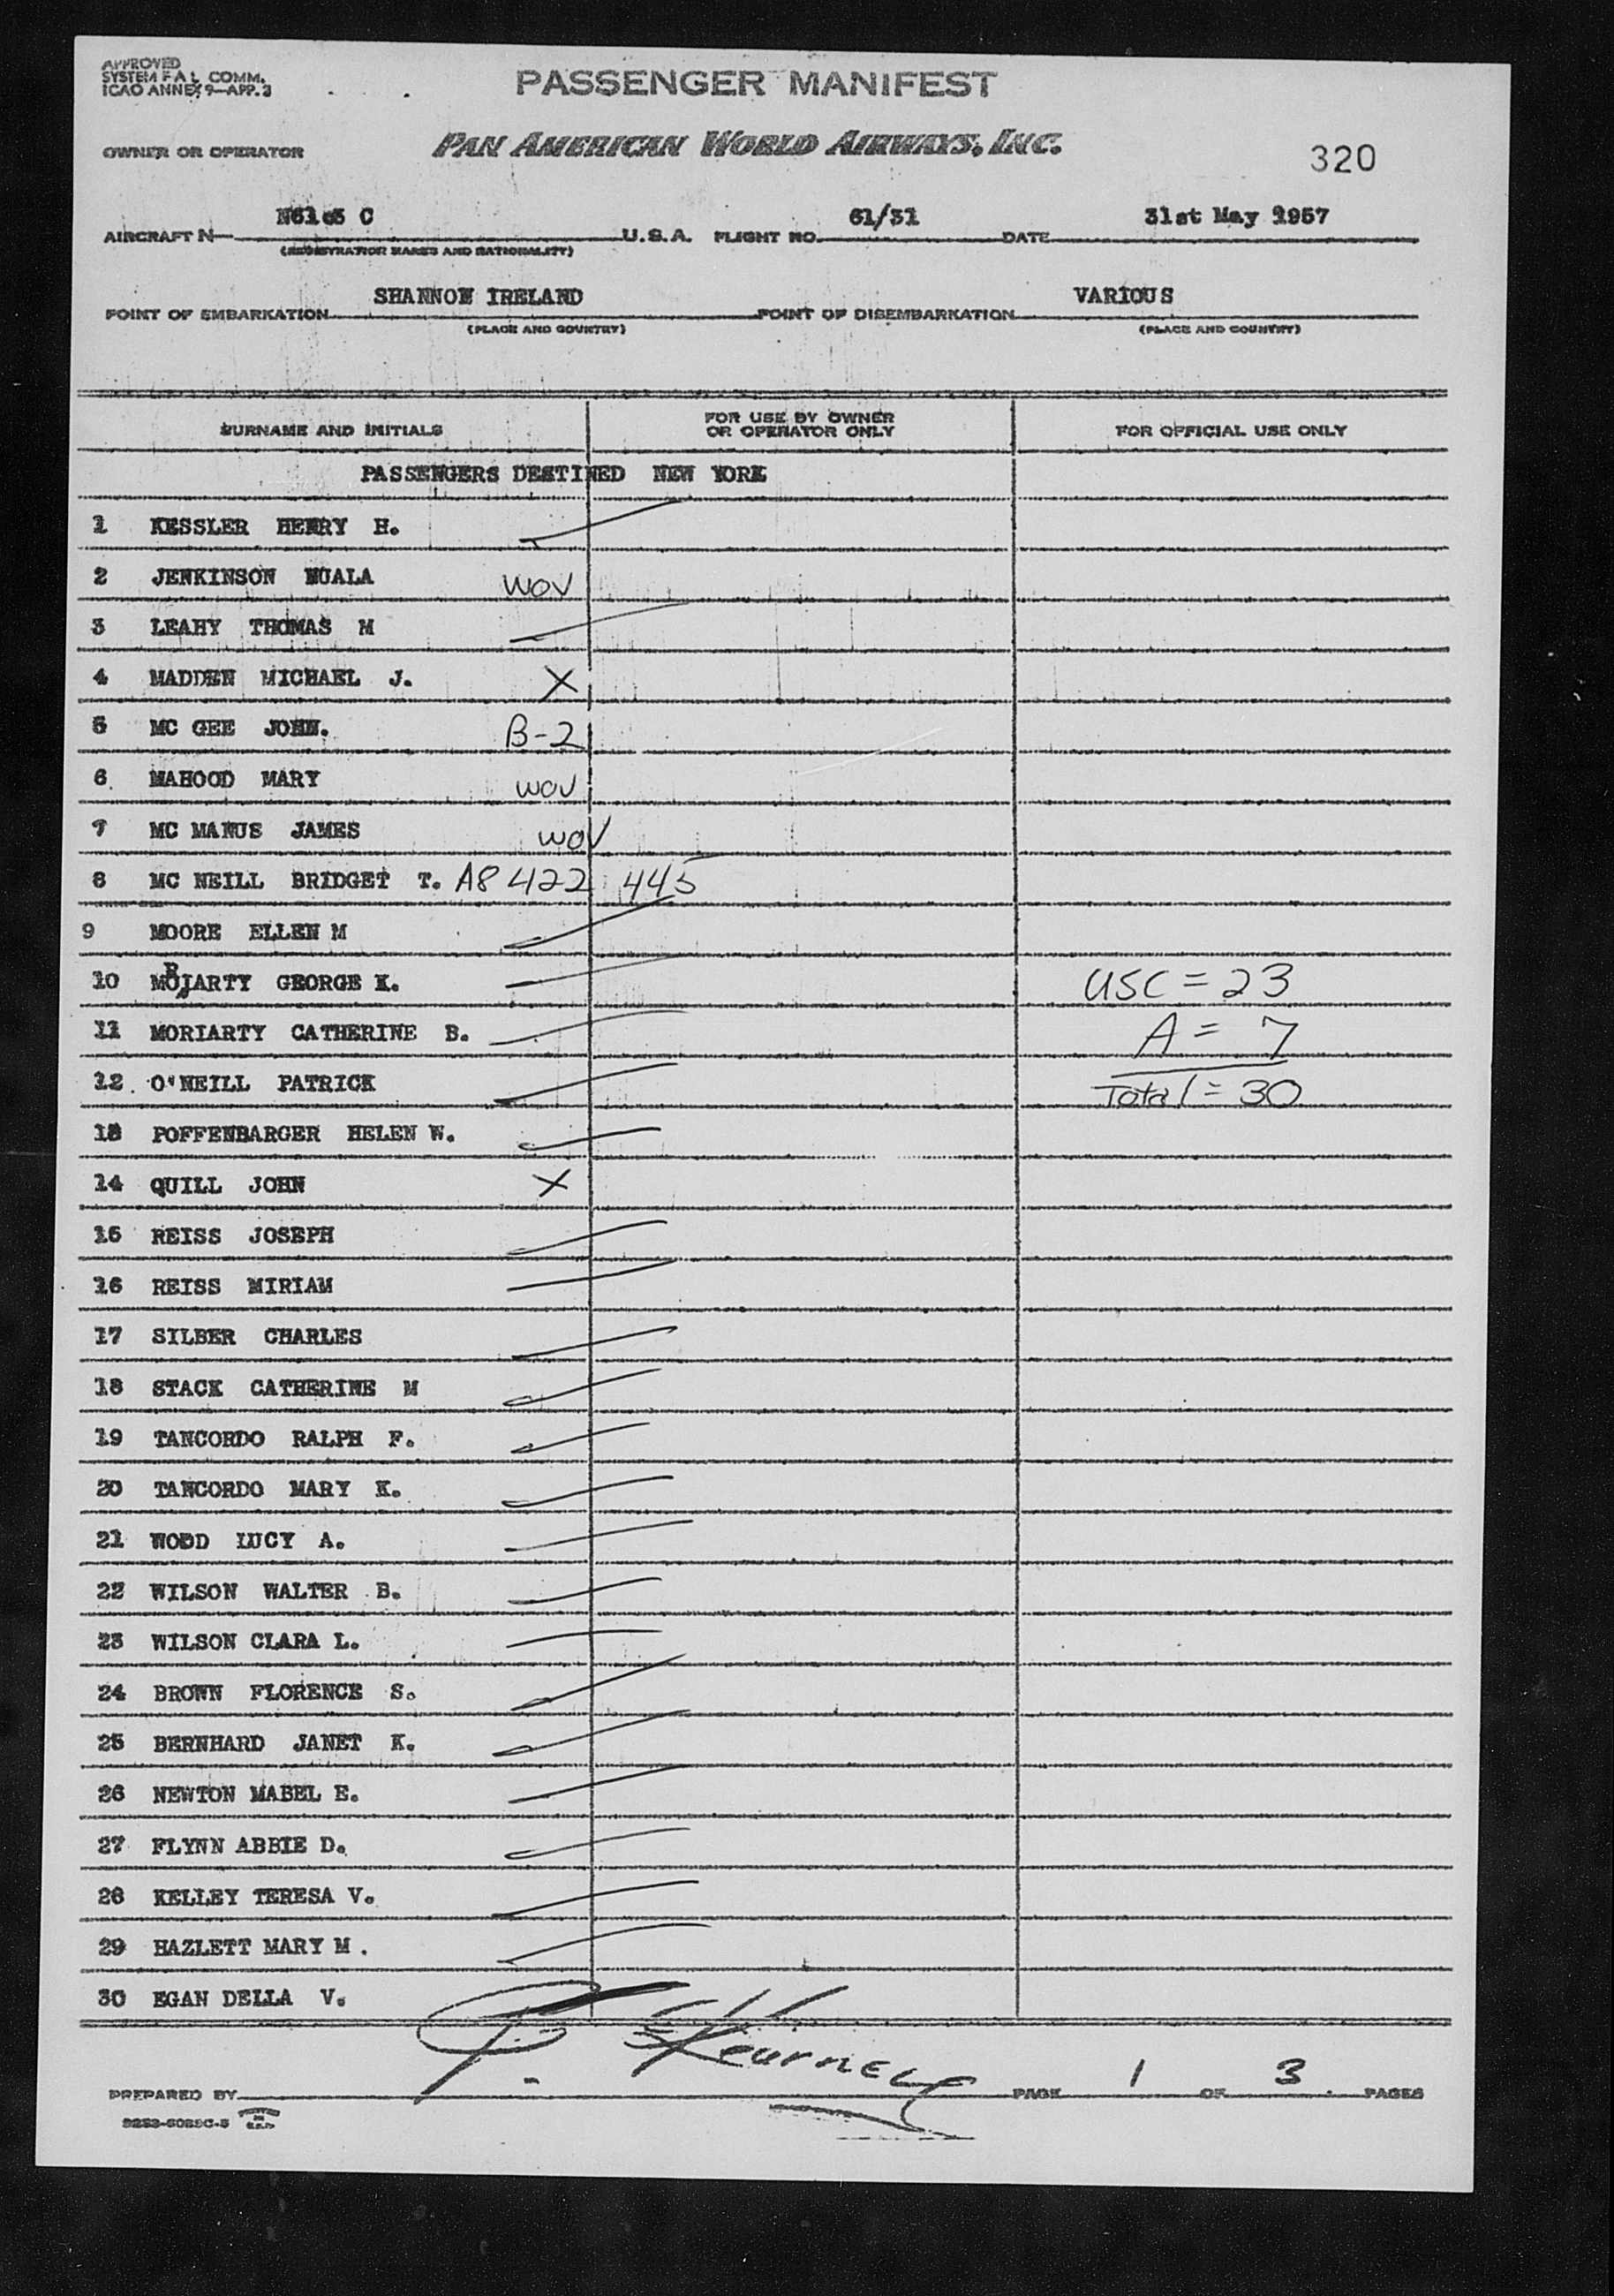 APPROVED
SYSTEM F A L COMM.
ICAO ANNEX 9—APP. 3
PASSENGER MANIFEST
OWNER OR OPERATOR
PAN AMERICAN WORLD AIRWAYS, INC.
320
AIRCRAFT N— C U.S.A. FLIGHT NO. 61/31 DATE 31st May 1957
(REGISTRATION MARKS AND NATIONALITY)
POINT OF EMBARKATION SHANNON IRELAND POINT OF DISEMBARKATION VARIOUS
(PLACE AND COUNTRY) (PLACE AND COUNTRY)
SURNAME AND INITIALS FOR USE BY OWNER OR OPERATOR ONLY FOR OFFICIAL USE ONLY
PASSENGERS DESTINED NEW YORK
1 KESSLER HENRY H.
2 JENKINSON NUALA WOV
3 LEAHY THOMAS M
4 MADDEN MICHAEL J. X
5 MC GEE JOHN. B-2
6 MAHOOD MARY WOV
7 MC MANUS JAMES WOV
8 MC NEILL BRIDGET T. A8 422 445
9 MOORE ELLEN M
10 MORIARTY GEORGE K. USC = 23
11 MORIARTY CATHERINE B. A = 7
12. O'NEILL PATRICK Total = 30
13 POFFENBARGER HELEN W.
14 QUILL JOHN X
15 REISS JOSEPH
16 REISS MIRIAM
17 SILBER CHARLES
18 STACK CATHERINE M
19 TANCORDO RALPH F.
20 TANCORDO MARY K.
21 WODD LUCY A.
22 WILSON WALTER B.
23 WILSON CLARA L.
24 BROWN FLORENCE S.
25 BERNHARD JANET K.
26 NEWTON MABEL E.
27 FLYNN ABBIE D.
28 KELLEY TERESA V.
29 HAZLETT MARY M .
30 EGAN DELLA V.
PREPARED BY P. PAGE 1 OF 3 PAGES